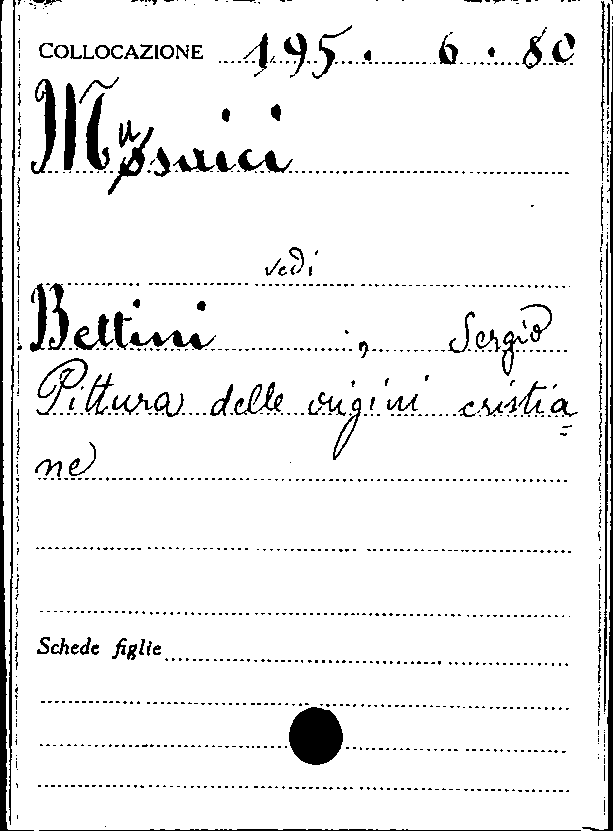 COLLOCAZIONE 195. 6. 80
Musaici
vedi
Bettini, Sergio
Pittura delle origini cristia=
ne
Schede figlie